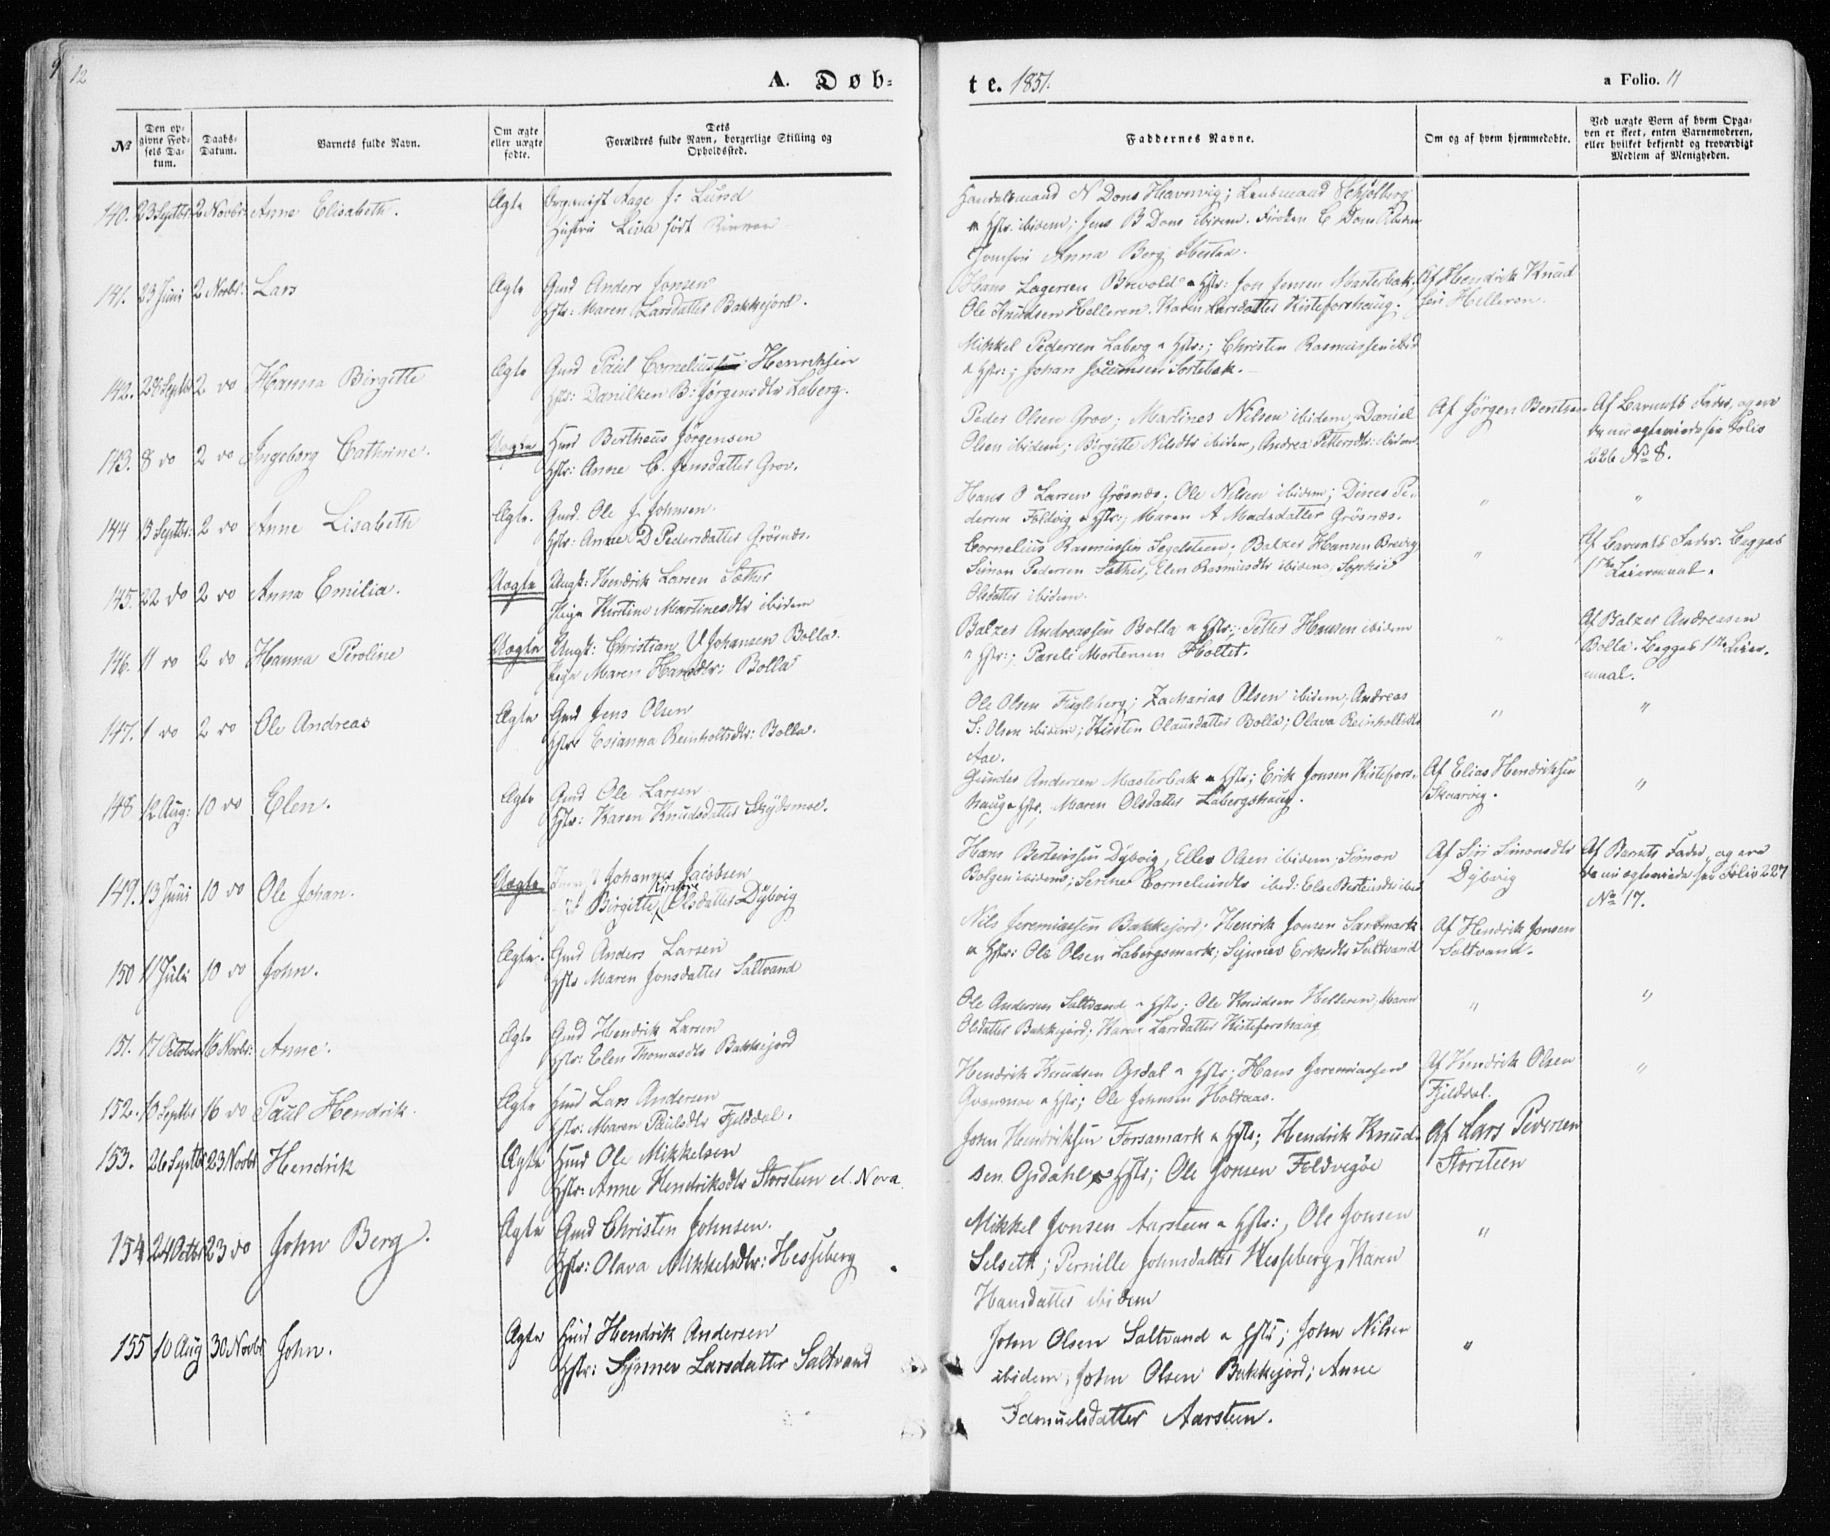 12
A. Døb-
te. 1851.
a Folio. 11
No
Den op-
givne Fød-
sels Da-
tum.
Daabs-
Datum.
Barnets fulde Navn.
Om ægte
eller uægte
fødte.
Dets
Forældres fulde Navn, borgerlige Stilling og
Opholdssted.
Faddernes Navne.
Om og af hvem hjemmedøbte.
Ved uægte Børn af hvem Opga-
ven er skeet, enten Barnemoderen,
eller hvilket bekjendt og troværdigt
Medlem af Menigheden.
140. 23 Septbr: 2 Novbr: Anne Elisabeth. Ægte Organist Aage J: Lund
Hustru Lina født
Handelsmand N Dons Havnvig; Lensmand Schjølberg
& Hstr. ibidem; Jens B Dons ibidem. Frøken C Dons ibidem
Jomfru Anna Berg Ibestad.
141. 23 Juni 2 Novbr: Lars Ægte Gmd Anders Jonsen
Hstr: Maren Larsdatter Bakkejord.
Hans Lagesen Brevold & Hstr: Jon Jensen Masterbak;
Ole Knudsen Helleren. Karen Larsdatter Kisteforshaug;
Af Hendrik Knud
sen Helleren.
142. 28 Septbr 2 do Hanna Birgitte Ægte Gmd Paul Cornelius Henriksen
Hstr: Danilken B: Jørgensdtr Laberg.
Mikkel Pedersen Laberg & Hstr:; Christen Rasmussen ibid
& Hstr:; Johan Sortebak.
143. 8 do 2 do Ingeborg Cathrine. Uægte Hmd Bertheus Jørgensen
Hstr: Anne C. Jensdatter Grov.
Peder Olsen Grov; Martines Nilsen ibidem; Daniel
Olsen ibidem; Birgitte Nilsdtr ibidem, Andrea Pettersdtr: ibidem.
Af Jørgen Bentsen
Af Barnets Fader, og ere
de nu ægteviede see Folio
226 No 8.
144 15 Septbr: 2 do Anne Lisabeth Ægte. Gmd. Ole J. Johnsen.
Hstr: Anne D Pedersdatter Grøsnæs.
Hans O Larsen Grøsnæs; Ole Nilsen ibidem; Dines Pe-
dersen Foldvig & Hstr:; Maren A Madsdatter Grøsnæs.
" "
145. 22 do 2 do Anna Emilia. Uægte Ungk: Hendrik Larsen Sother
Pige Kirstine Martinesdtr ibidem
Cornelius Rasmussen Segelsteen; Balzer Hansen Brevig
Simon Pedersen Sother, Elen Rasmusdtr ibidem, Sophie
Olsdatter ibidem.
"
Af Barnets Fader. Begges
1ste Leiermaal.
146. 11 do 2 do Hanna Peroline Uægte Ungk: Christian U Johansen Bolla.
Pige Maren Hansdtr: Bolla
Balzer Andreassen Bolla & Hstr:; Petter Hansen ibidem
& Hstr:; Pareli Mortensen Holtet.
"
Af Balzer Andreasen
Bolla. Begges 1ste Leier-
maal.
147. 1 do 2 do Ole Andreas Ægte Gmd Jens Olsen
Hstr: Esianna Reinholtsdtr: Bolla.
Ole Olsen Fugleberg; Zacharias Olsen ibidem; Andreas
S: Olsen ibidem; Kirsten Olausdatter Bolla; Olava Reinholtsdtr
Aae.
" "
148. 12 Aug: 10 do Elen. Ægte Gmd Ole Larsen
Hstr: Karen Knudsdatter Skydsmoe.
Gundes Andersen Masterbak & Hstr; Erik Jonsen Kistefors-
haug & Hstr; Maren Olsdatter Labergshaug.
Af Elias Hendriksen
Skaarvig.
"
149. 13 Juni 10 do Ole Johan. Uægte Johannes Jacobsen
Birgitte Kirstine Olsdatter Dybvig
Hans Berteussen Dybvig, Elles Olsen ibidem; Simon
Bolgen ibidem; Serine Corneliusdtr ibid: Else Berteusdtr ibid
Af Siri Simonsdtr
Dybvig
Af Barnets Fader, og ere
de nu ægteviede see Folio 227
No 17.
150 11 Juli 10 do John. Ægte. Gmd Anders Larsen
Hstr Maren Jonsdatter Saltvand
Nils Jeremiassen Bakkejord; Henrik Jonsen Sandmark
& Hstr: Ole Olsen Labergsmark; Synnev Eriksdtr Saltvand
Af Hendrik Jonsen
Saltvand.
151. 17 October 16 Novbr: Anne. Ægte Gmd Hendrik Larsen
Hstr: Elen Thomasdtr Bakkejord
Ole Andersen Saltvand & Hstr; Ole Knudsen Helleren, Maren
Olsdatter Bakkejord; Karen Larsdatter Kisteforshaug
" "
152. 10 Septbr 16 do Paul Hendrik. Ægte Hmd Lars Andersen
Hstr: Maren Paulsdtr Fjelddal.
Hendrik Knudsen Gsdal & Hstr; Hans Jeremiassen
Grønmoe & Hstr; Ole Johnsen Holtaas.
Af Hendrik Olsen
Fjelddal.
"
153. 26 Septbr 23 Novbr Hendrik Ægte Hmd Ole Mikkelsen
Hstr: Anne Hendriksdtr Storsteen
John Hendriksen Forsamark & Hstr; Hendrik Knud-
sen Gsdahl & Hstr; Ole Jonsen Foldvigøe
Af Lars Pedersen
Storsteen
154 24 Octbr 23 do John Berg. Ægte Gmd Christen Johnsen.
Hstr: Olava Mikkelsdtr: Hesseberg
Mikkel Jonsen Aarsteen & Hstr:, Ole Jonsen
Selseth; Pernille Johnsdatter Hesseberg, Karen
Hansdatter ibidem
"
155 10 Aug 30 Novbr John. Ægte Hmd Hendrik Andersen
Hstr: Synnev Larsdatter Saltvand
John Olsen Saltvand & Hstr; John Nilsen
ibidem, John Olsen Bakkejord; Anne
Samuelsdatter Aarsteen.
"